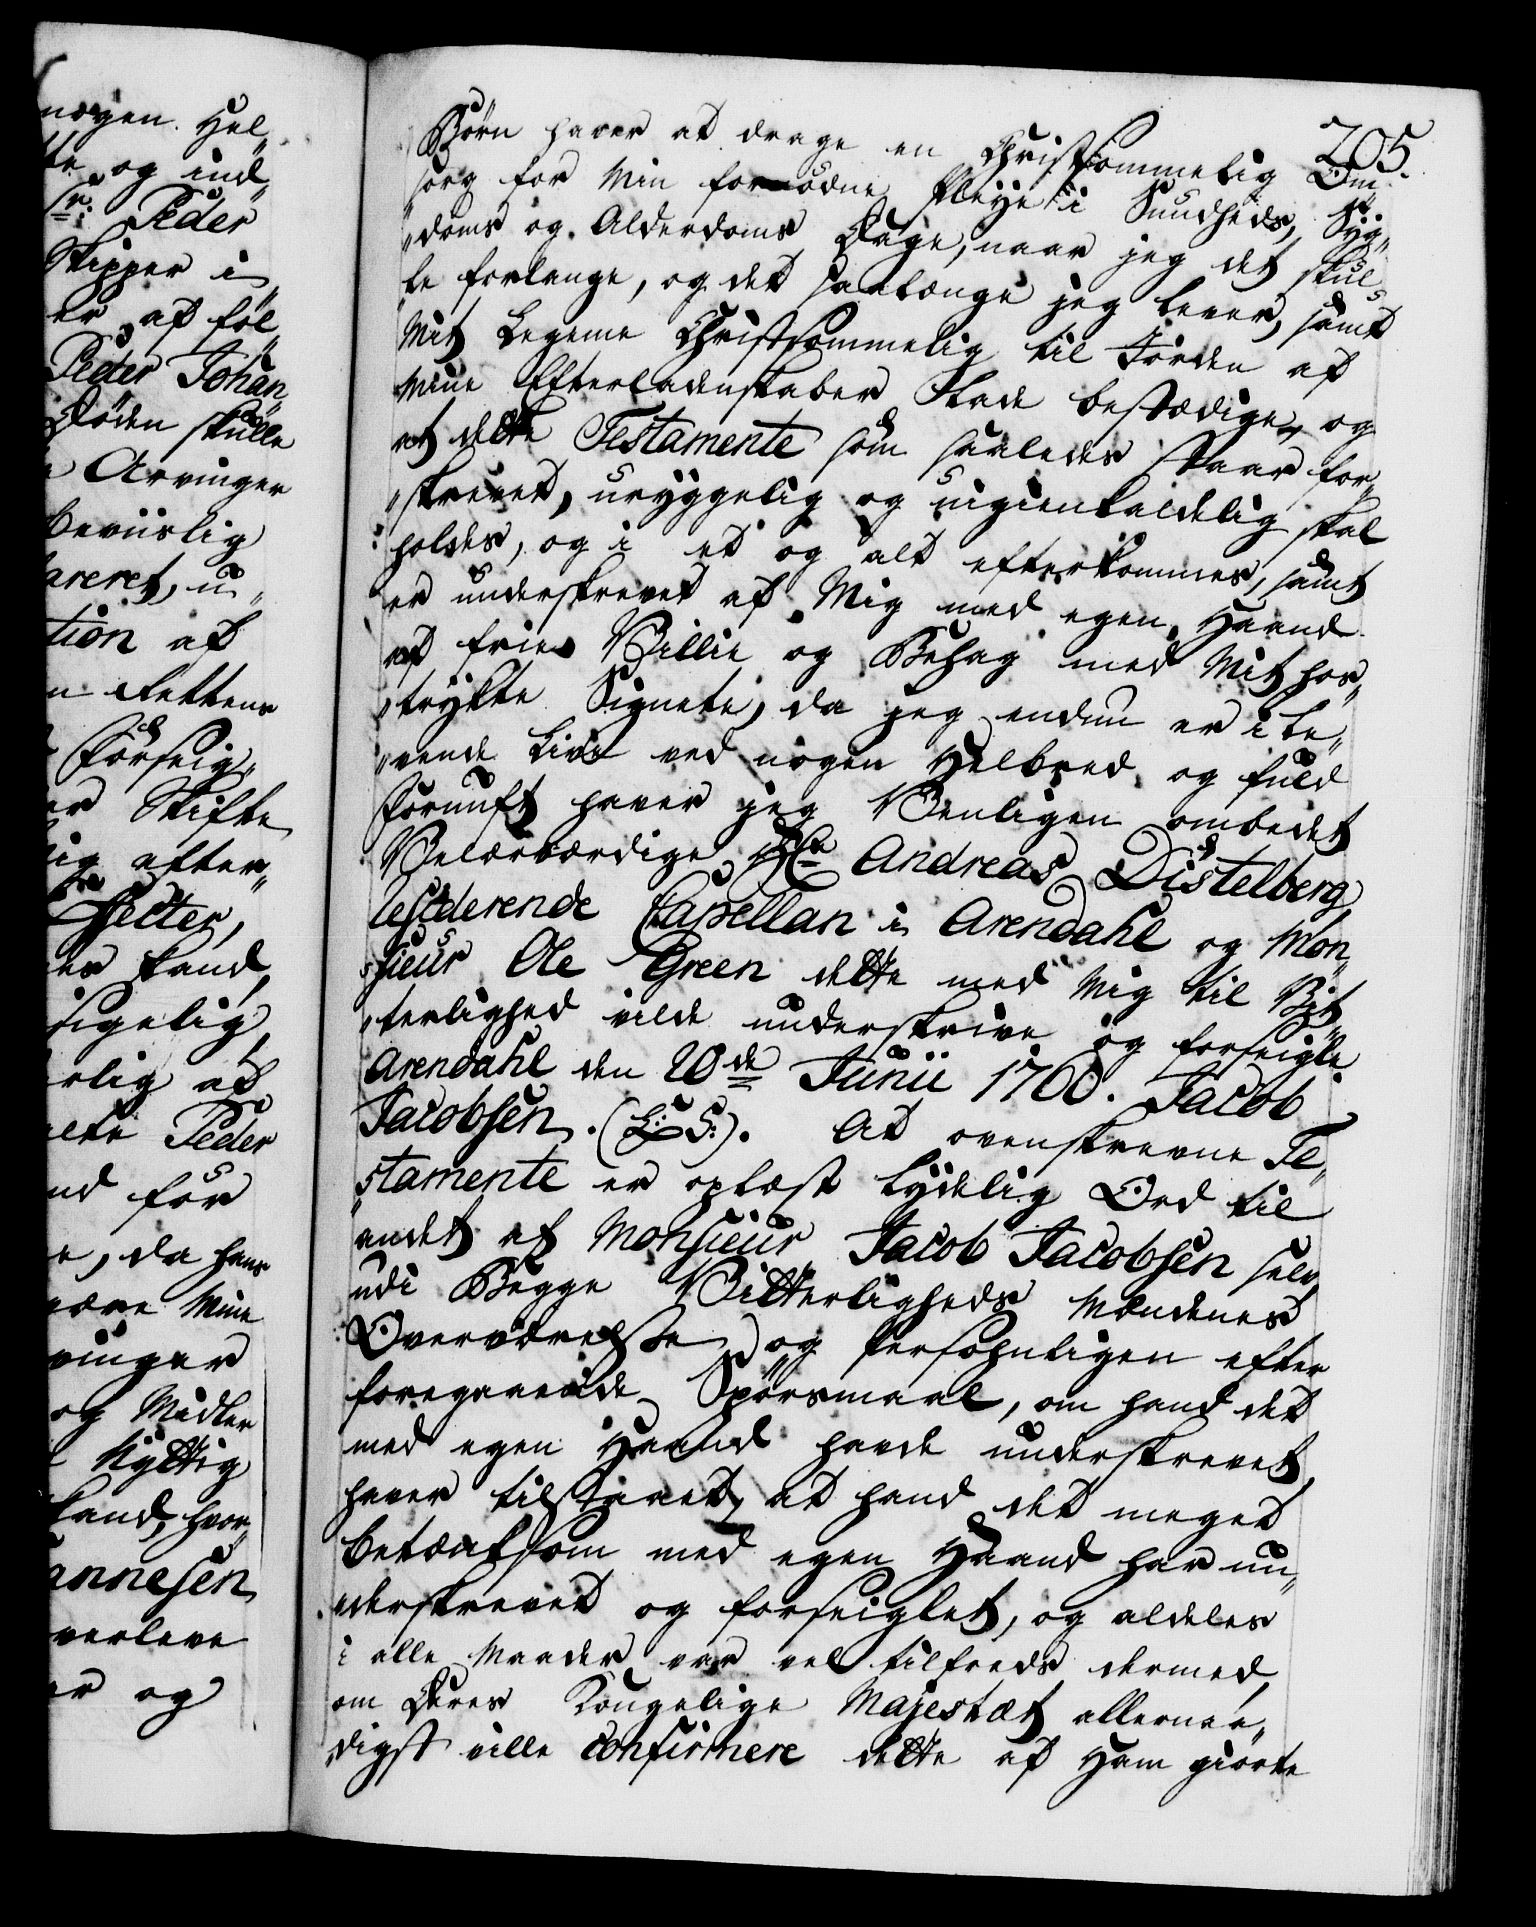 nogen Hel„
og ind„
Sr: Peder
Skipper i
er af føl„
Peder Johan„
Døden skulle
Arvinger
beviislig
areret, u„
tion at
n Rettens
Forseig„
er Skifte
lig efter„
Effecter,
kand,
sigelig
rlig at
Peder
nd for
e, da hans
være Mine
vinger
og Midler
Nÿttig
kand, hvor„
annesen
verleve
er og
205.
Børn haver at drage en Christsømmelig Om„
„sorg for Min fornødne Pleÿe i Sundheds, Sÿg„
„doms og Alderdoms Dage, naar jeg det skul„
„le forlange, og det saalænge jeg lever, samt
Mit Legeme Christsømmelig til Jorden af
Mine Efterladenskaber lade bestædige, og
at dette Testamente som saaledes staar for„
„skrevet, uryggelig og uigienkaldelig skal
holdes, og i et og alt efterkommes, samt
er underskrevet af Mig med egen Haand
af frie Villie og Behag med Mit hos„
„trÿkte Signete, da jeg endnu er i le„
„vende Live ved nogen Helbred og fuld
Fornuft haver jeg Venligen ombedet
Velærværdige Hr Andreas Distelberg
Residerende Capellan i Arendahl og Mon„
„sieur Ole Green dette med Mig til Vit„
„terlighed vilde underskrive og forseigle.
Arendahl den 20de Junii 1760. Jacob
Jacobsen. (L: S:). At ovenskrevne Te„
„stamente er oplæst lÿdelig Ord til
andet af Monsieur Jacob Jacobsen selv
udi Begge Vitterligheds Mændenes
Overværelse og Persohnligen efter
foregaaende Spørsmaal, om hand det
med egen Haand havde underskrevet,
haver tilstaaet, at hand det meget
betænksom med egen Haand har un„
„derskrevet og forseiglet, og aldeles
i alle Maader var vel tilfreds dermed,
om Deres Kongelige Majestæt allernaa„
„digst ville confirmere dette af Ham giorte